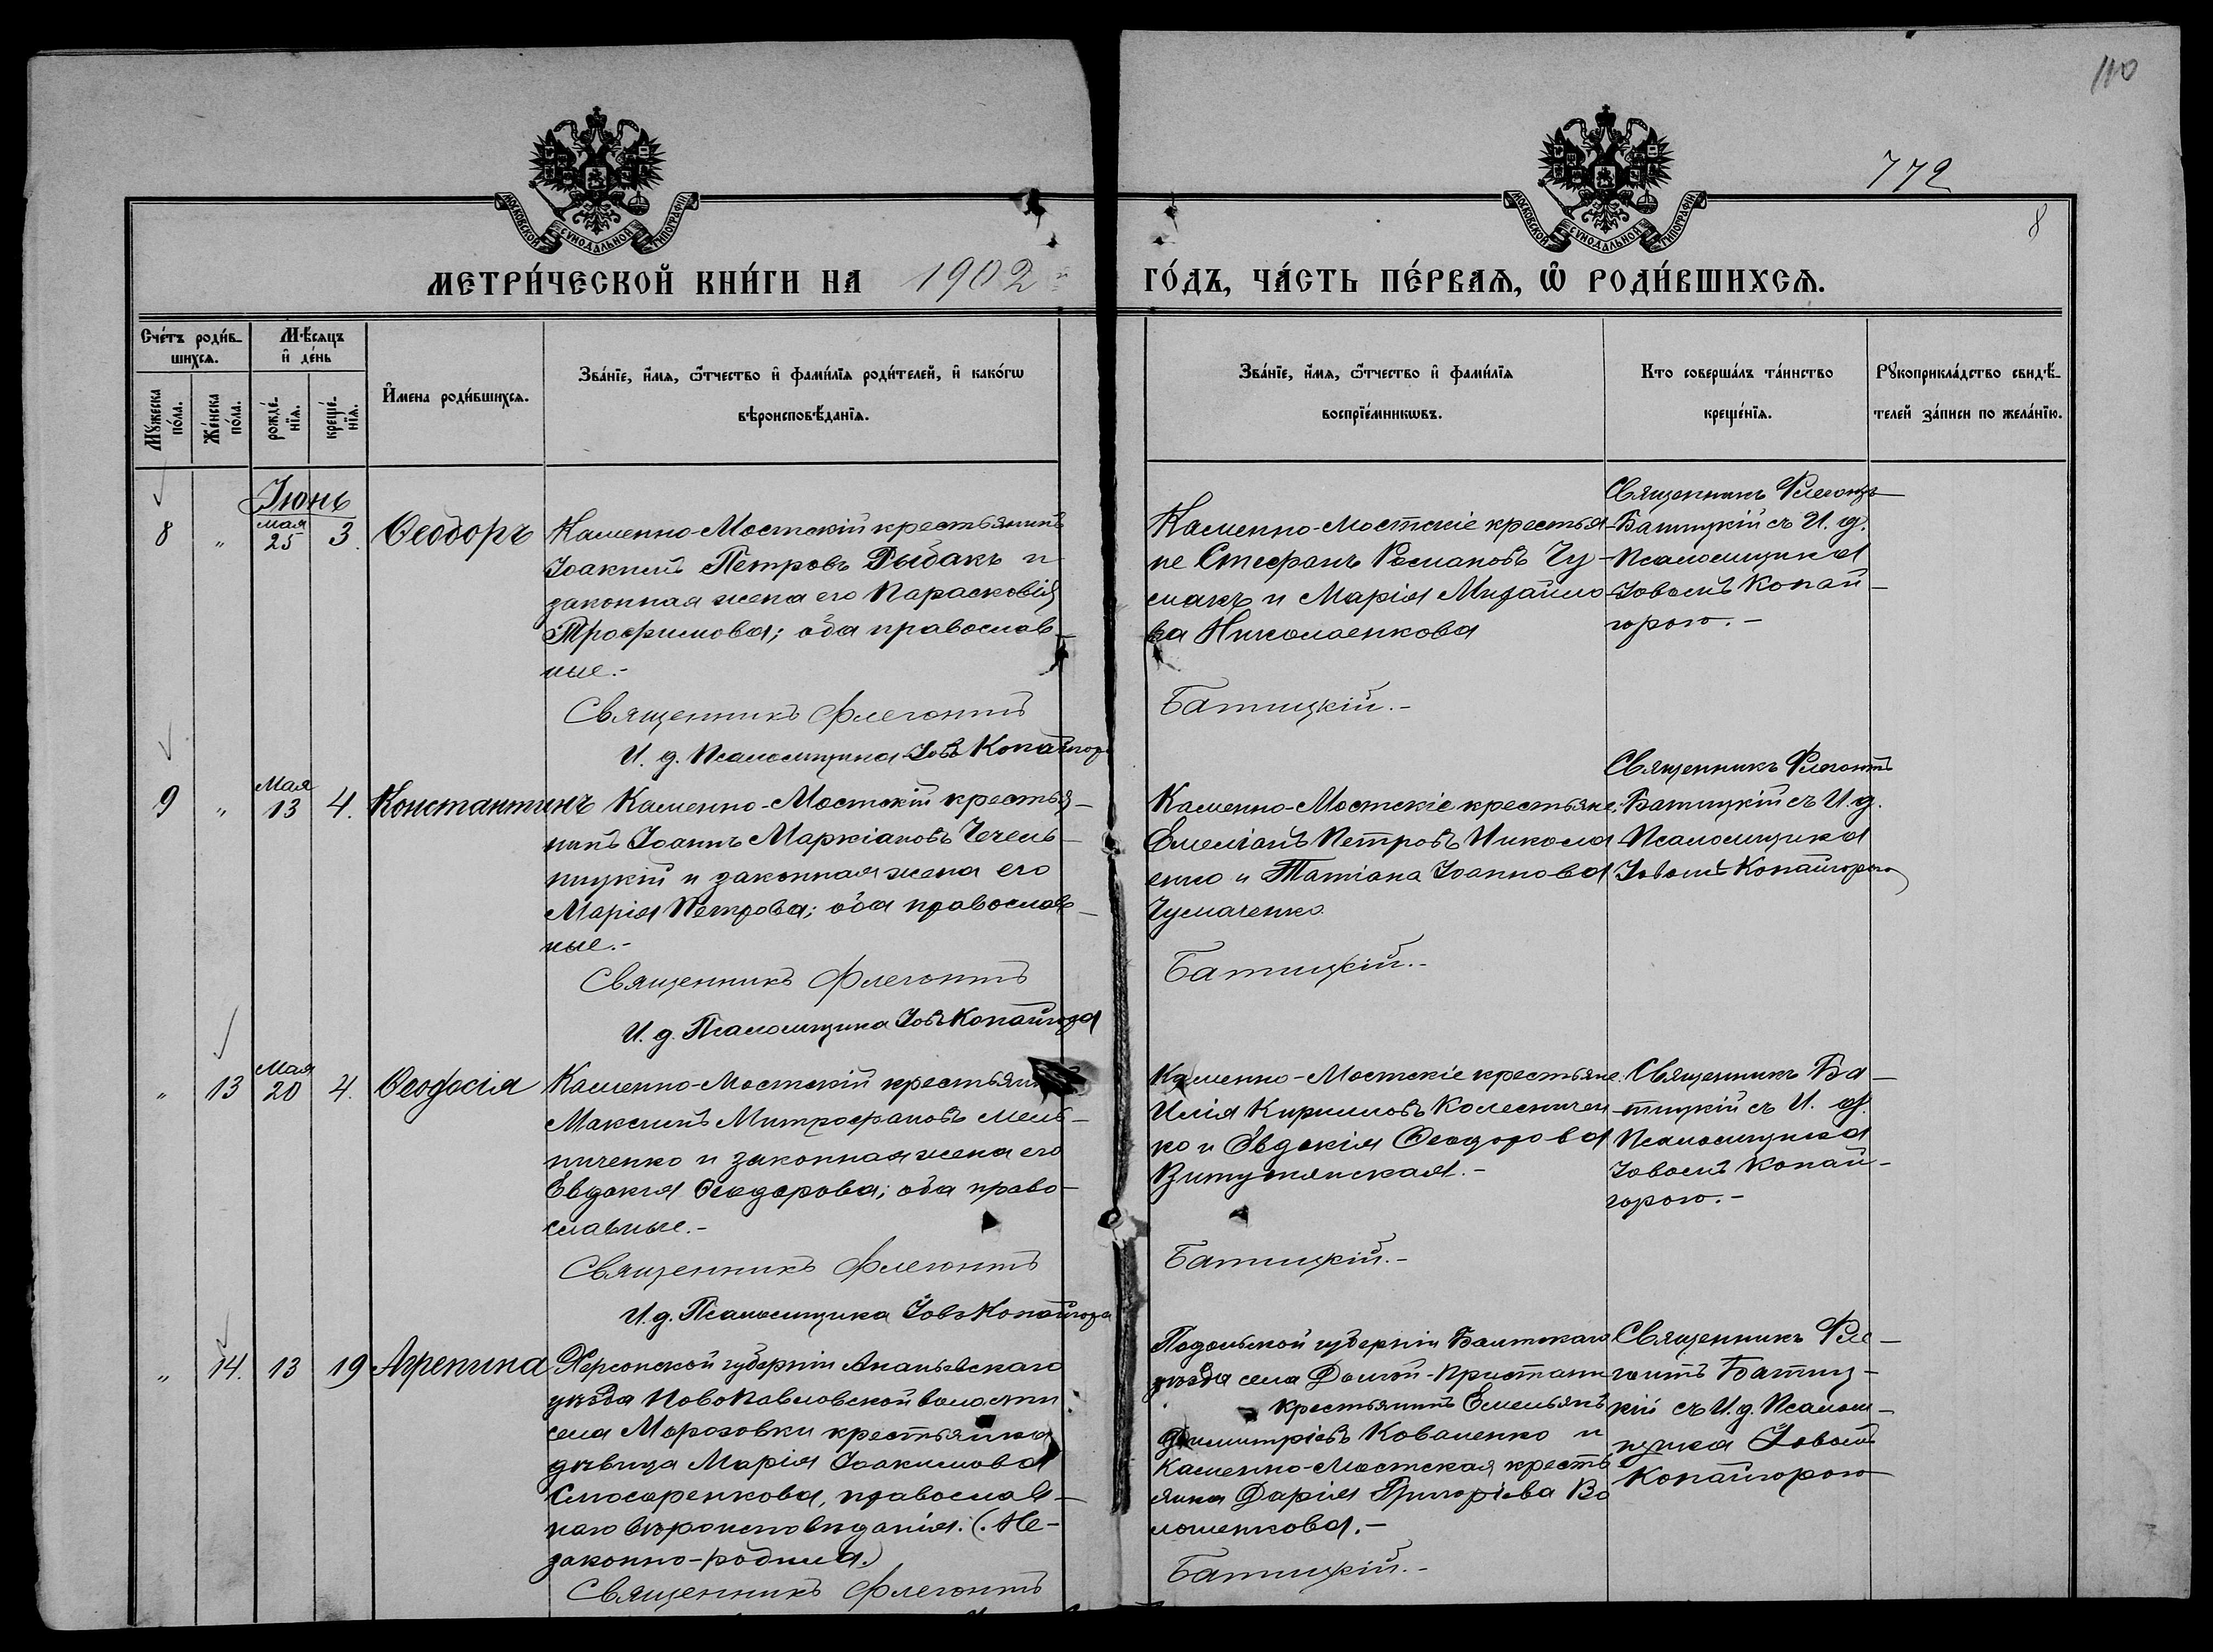 110
772
8
МОСКОВСКОЙ СѴНОДАЛЬНОЙ ТИПОГРАФІИ
МОСКОВСКОЙ СѴНОДАЛЬНОЙ ТИПОГРАФІИ
МЕТРИ́ЧЕСКОЙ КНИ́ГИ НА 1902 й ГО́ДЪ, ЧА́СТЬ ПЕ́РВАѦ, Ѽ РОДИ́ВШИХСѦ.
Сче́тъ роди́в-
шихсѧ.
Мꙋ́жеска по́ла.
Же́нска по́ла.
Мѣ́сѧцъ и҆ де́нь
рожде́-нїѧ.
креще́-нїѧ.
И҆́мена роди́вшихсѧ.
Зва́нїе, и҆́мѧ, ѻ҆́тчество и҆ фами́лїѧ роди́телей, и҆ како́гѡ
вѣроисповѣ́данїѧ.
Зва́нїе, и҆́мѧ, ѻ҆́тчество и҆ фами́лїѧ
воспрїе́мникѡвъ.
Кто соверша́лъ та́инство
креще́нїѧ.
Рꙋкоприкла́дство свидѣ́-
телей за́писи по жела́нїю.
Іюнь
8 " мая 25 3. Ѳеодоръ
Каменно-Мостскій крестьянинъ
Іоакимъ Петровъ Рыбакъ и
законная жена его Парасковія
Трофимова; оба православ-
ные.-
Священникъ Флегонтъ
И. д. Псаломщика Іовъ Копайгора
Каменно-Мостскіе крестья-
не Стефанъ Романовъ Чу-
макъ и Марія Михайло-
ва Николаенкова
Батицкій.-
Священникъ Флегонтъ
Батицкій съ И. д.
Псаломщика
Іовомъ Копай-
горою.-
9 " Мая 13 4. Константинъ
Каменно-Мостскій крестья-
нинъ Іоаннъ Маркіановъ Чечель-
ницкій и законная жена его
Марія Петрова; оба православ-
ные.-
Священникъ Флегонтъ
И. д. Псаломщика Іовъ Копайгора
Каменно-Мостскіе крестьяне:
Емеліанъ Петровъ Никола
енко и Татіана Іоаннова
Чумаченко
Батицкій.-
Священникъ Флегонтъ
Батицкій съ И. д.
Псаломщика
Іовомъ Копайгорою
" 13 Мая 20 4. Ѳеодосія
Каменно-Мостскій крестьянинъ
Максимъ Митрофановъ Мель-
ниченко и законная жена его
Евдокія Ѳеодорова; оба право-
славные.-
Священникъ Флегонтъ
И. д. Псаломщика Іовъ Копайгора
Каменно-Мостскіе крестьяне:
Илія Кирилловъ Колесничен
ко и Евдокія Ѳеодорова
Батицкій.-
Священникъ Ба-
тицкій съ И. д.
Псаломщика
Іовомъ Копай-
горою.-
" 14. 13 19 Агрепина
Херсонской губерніи Ананьевскаго
уѣзда Новопавловской волости
села Морозовки крестьянка
дѣвица Марія Іоакимова
Слюсаренкова, православ-
наго вѣроисповѣданія. (Не-
законно-родила.)
Священникъ Флегонтъ
Подольской губерніи Балтскаго
уѣзда села Долгой-Пристани
крестьянинъ Емельянъ
Димитріевъ Коваленко и
Каменно-Мостская кресть
янка Дарія Григоріева Во
лошенкова.-
Батицкій.-
Священникъ Фле-
гонтъ Батиц-
кій съ И. д. Псалом-
щика Іовомъ
Копайгорою